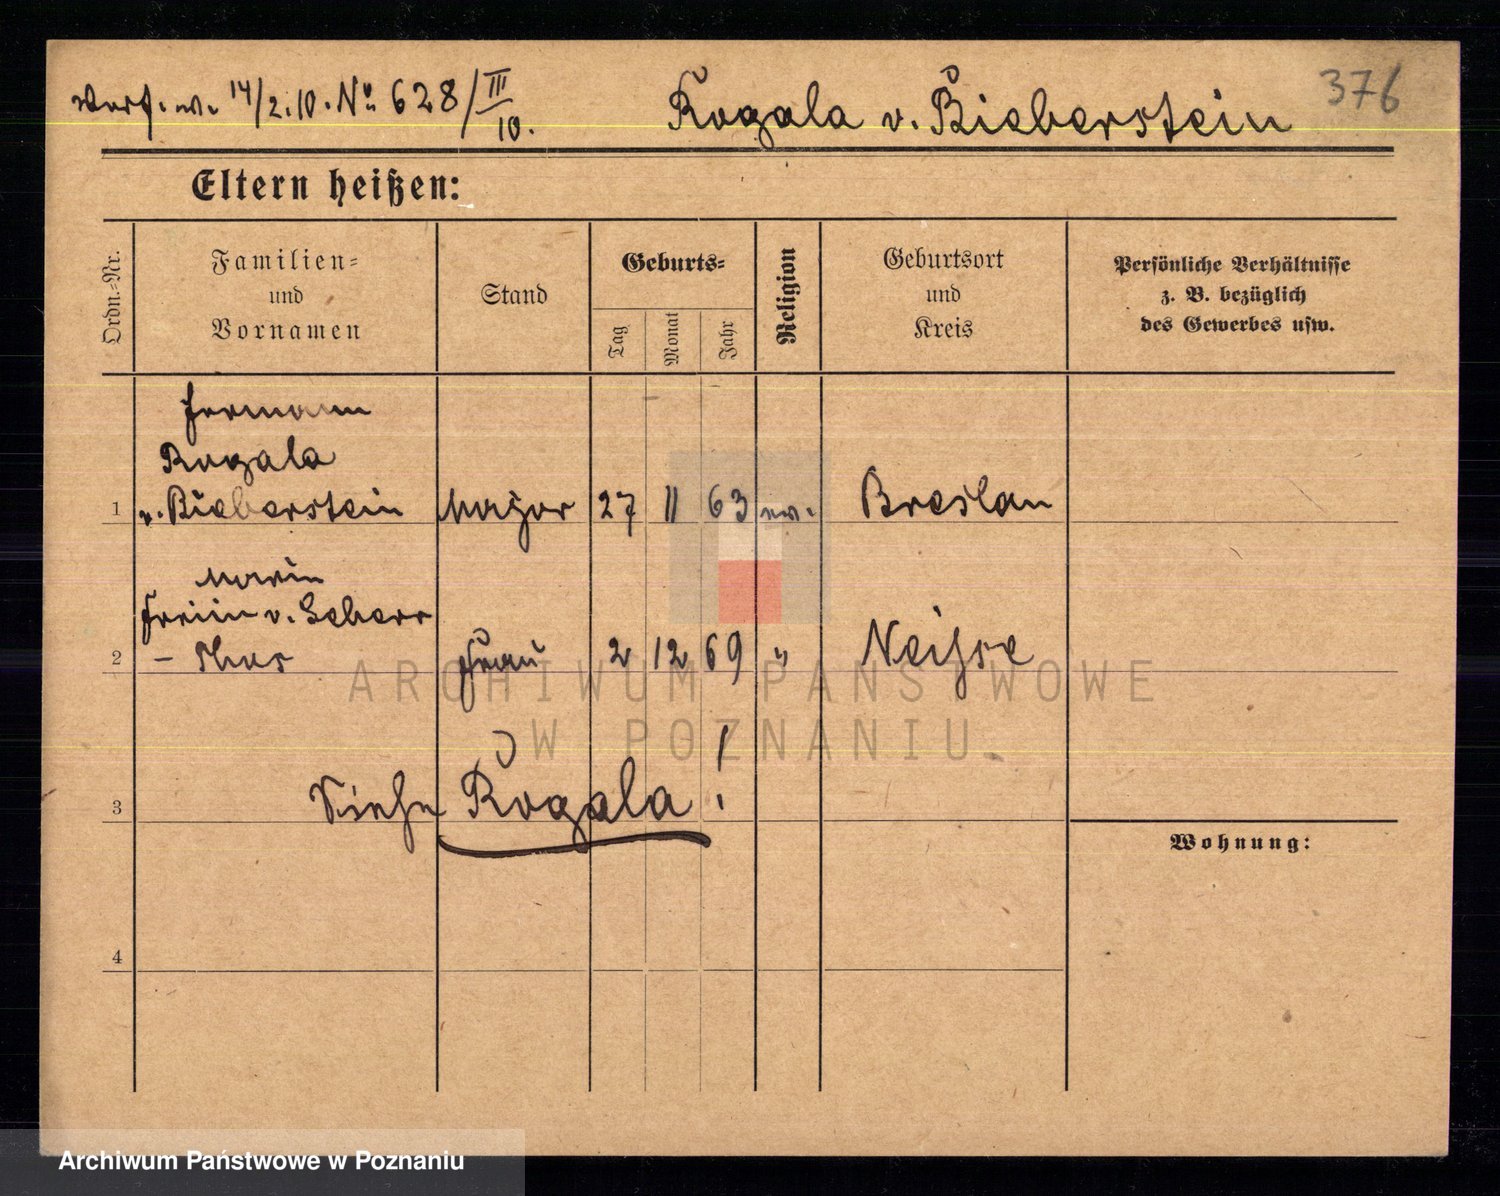 Verf. v. 14/2.10. No 628/III/10.
Rogala v. Bieberstein
376
Eltern heißen:
Ordn.-Nr.
Familien-
und
Vornamen
Stand
Geburts-
Tag
Monat
Jahr
Religion
Geburtsort
und
Kreis
Persönliche Verhältnisse
z. B. bezüglich
des Gewerbes usw.
Hermann
Rogala
1 v. Bieberstein Major 27 11 63 ev. Breslau
Marie
Freiin v. Scherr
2 – Thoss Frau 2 12 69 " Neisse
3 Siehe Rogala!
Wohnung:
4
ARCHIWUM PAŃSTWOWE
W POZNANIU
Archiwum Państwowe w Poznaniu